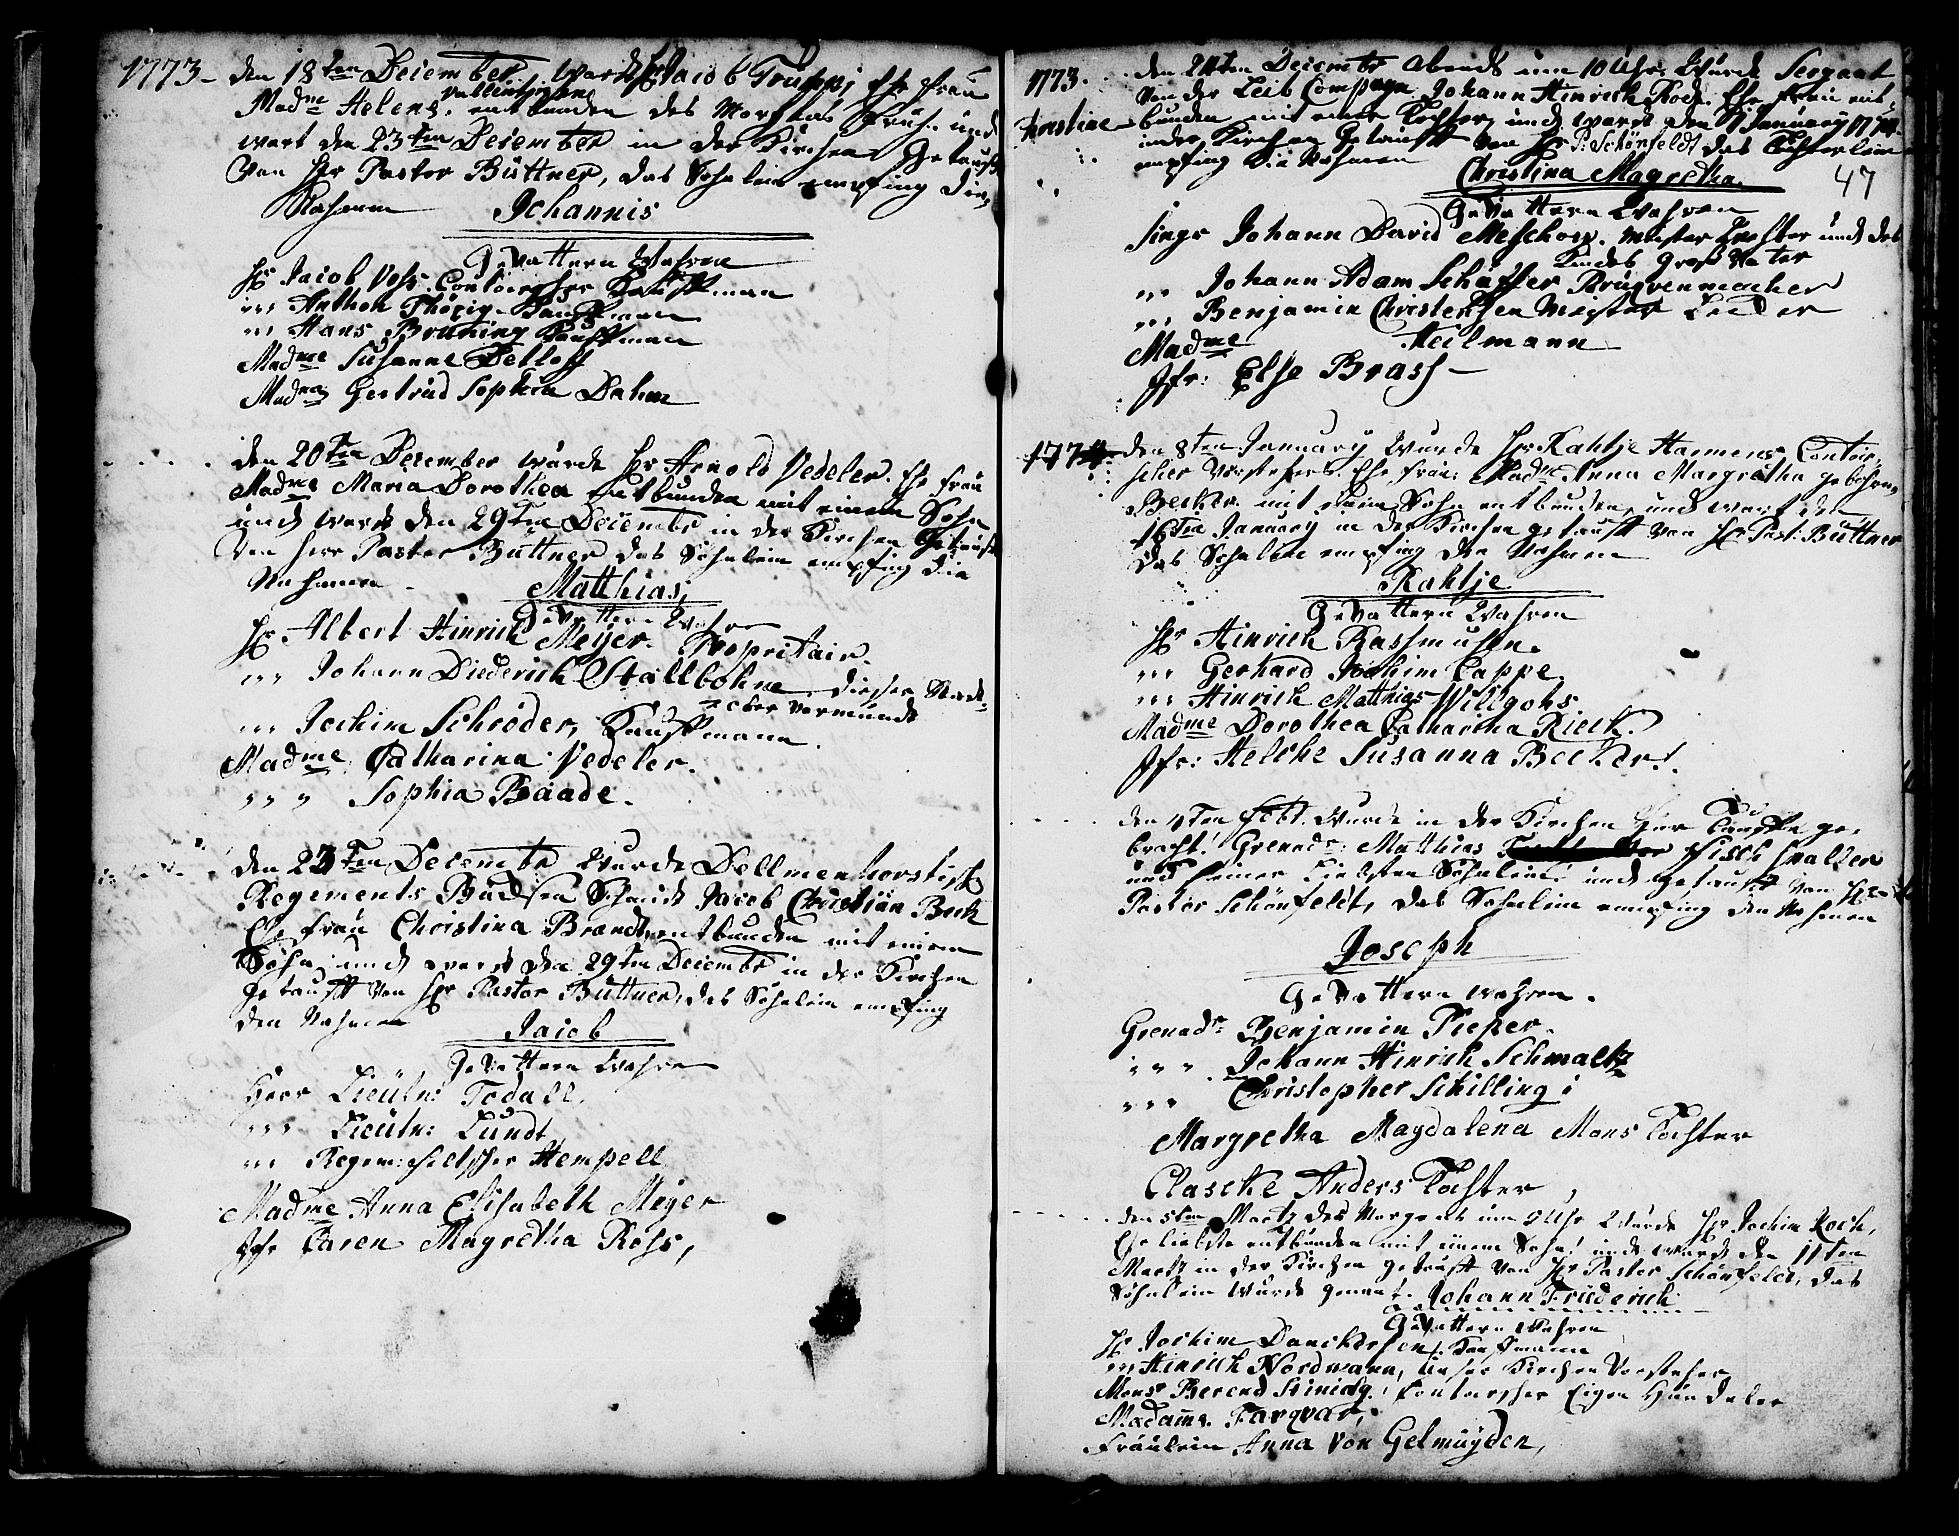 1773. den 18ten December ward Hr Jacob Trupp, Ehe frau
Vallentinsen
Madme Helena, entbunden des Morgens Früh und
wart den 23ten December in der Kirchen Getauft
Von Hr Pastor Büttner, das Söhnlein empfing die
Nahmen Johannis
GeVattern Wahren
Hr Jacob Voss Contoirscher Kauffman
,,, Anthon Thörig Kauffman
,,, Hans Bruning Kauffman
Madme Susanne Detloff
Madme Gertrud Sophia Dahm
den 20ten December wurde Hr Arnold Vedeler Ehe frau
Madme Maria Dorothea entbunden mit einem Sohn
und ward den 29ten Decembr in der Kirchen Getauft
Von Herr Pastor Büttner das Söhnlein empfing die
Nahmen Matthias,
GeVattern Wahren
Hr Albert Hinrich Meyer. Propritair.
,,, Johann Diederich Stallbohm dieser Stadt
ober Vormund
,,, Jochim Schröder, Kauffmann.
Madme Catharina Vedeler.
,,, Sophia Baade.
den 23ten Decembr Wurde Dellmenhorstisch
Regements Büdsen Schmidt Jacob Christian Beck
Ehe frau Christina Brandt entbunden mit einem
Sohn, und ward den 29ten Decembr in der Kirchen
getaufft Von Hr Pastor Büttner, das Söhnlein empfing
den Nahmen Jacob
GeVattern Wahren
Herr Lieutn: Todall.
,,, Lieutn: Lundt
,,, Regem: feltscher Hempell
Madme Anna Elisabeth Meyer
Jfr Caren Magretha Röss,
1773. den 24ten Decembr Abends um 10 Uhr Wurde Sergant
Von der Leib Compagn Johann Hinrich Rode Ehe frau ent-
Christine bunden mit einer Tochter, und ward den January 1774
in der Kirchen Getaufft Von Hr P: Schönfeldt, das Töchterlein
empfing die Nahmen
Christina Magretha. 47
GeVattern Wahren
Johann David Meschow. Meister und des
Kindes Gross Vater
,,, Johann Adam Schäffer Brügvenmacher
,,, Benjamin Christensen Meister
Madme Heilmann
Jfr: Else Brass
1774. den 8ten January Wurde Hr Rahtje Harmens Contoir-
scher Vorsteher Ehe frau Madme Anna Margretha gebohren
Becker mit einem Sohn entbunden, und ward den
16ten January in der Kirchen getauft Von Hr Past: Büttner
das Söhnlein empfing den Nahmen
Rahtje
GeVattern Wahren
Hr Hinrich Rassmusen.
,,, Gerhard Jochim Cappe.
,,, Hinrich Matthias Willgohs
Madme Dorothea Catharina Rieck.
Jfr: Helche Susanna Becker.
den 4ten Febr. Wurde in der Kirchen zur Tauffe ge-
bracht! Grenadr: Matthias Fischhalter
und seiner Liebsten Söhnlein und getauft Von Hr
Pastor Schönfeldt, das Söhnlein empfing den Nahmen
Joseph
GeVattern Wahren.
Grenadr Benjamin Pieper.
,,, Johann Hinrich Schmaltz
,,, Christopher Schilling
Margretha Magdalena Mons Tochter
Clascke Anders Tochter,
den 5ten Martz des Morgens um 9 Uhr Wurde Hr Jochim Koch,
Ehe liebste entbunden mit einem Sohn! und ward den 11ten
Martz in der Kirchen getauft Von Hr Pastor Schönfeldt, das
Söhnlein Wurde genant. Johann Friederich
GeVattern Wahren
Hr Jochim Danckersen. Kaufmann
,,, Hinrich Nordmann, Unser Kirchen Vorsteher
Monsr Berend Contoirscher Eigen Händeler
Madame. Farqvar,
Fräulein Anna Von Gelmuyden,